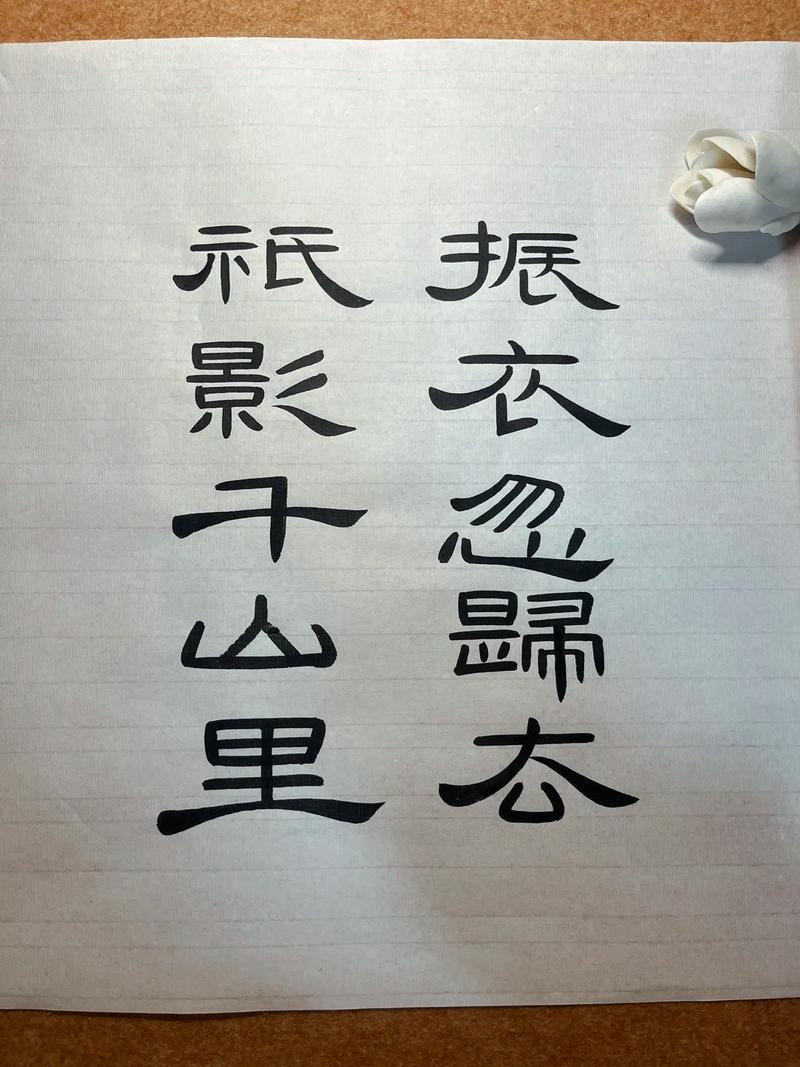 振衣忽歸去
祇影千山里